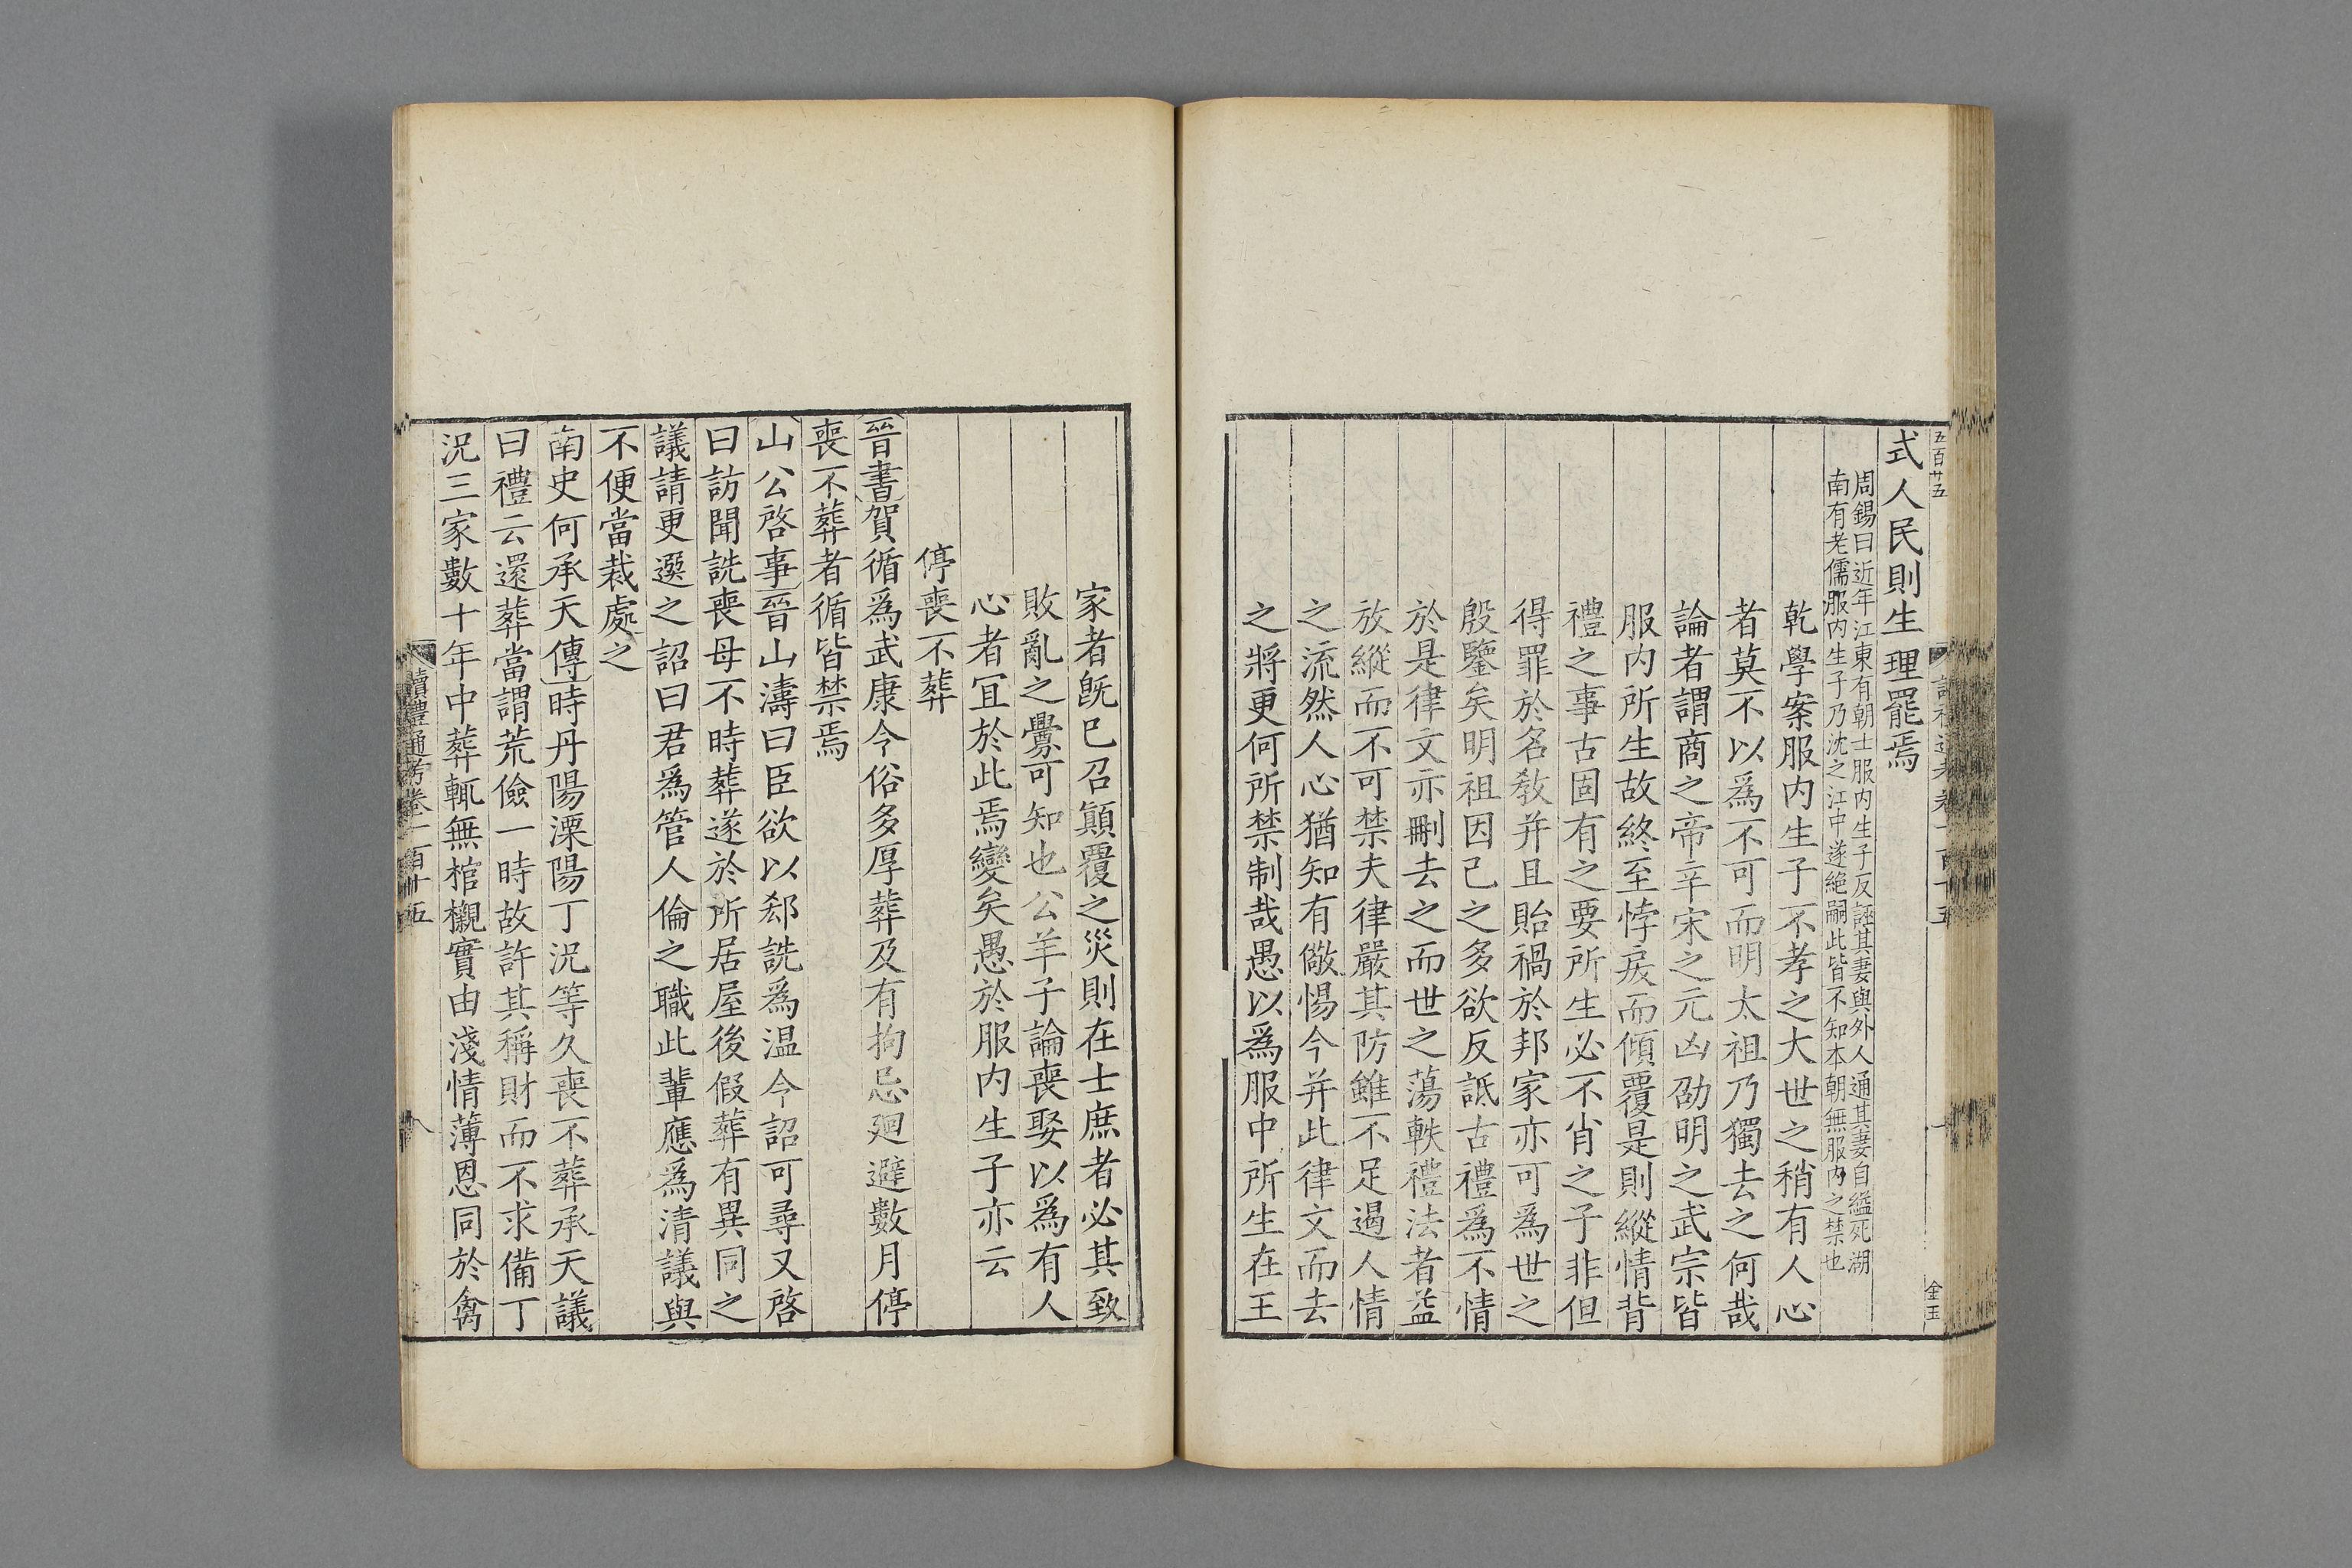 五百廿五
金玉
式人民則生理罷焉
周錫曰近年江東有朝士服内生子反誣其妻與外人通其妻自縊死湖
南有老儒服内生子乃沈之江中遂絶嗣此皆不知本朝無服内之禁也
乾學案服内生子不孝之大世之稍有人心
者莫不以爲不可而明太祖乃獨去之何哉
論者謂商之帝辛宋之元凶劭明之武宗皆
服内所生故終至悖戾而傾覆是則縱情背
禮之事古固有之要所生必不肖之子非但
得罪於名教并且貽禍於邦家亦可爲世之
殷鑒矣明祖因己之多欲反詆古禮爲不情
於是律文亦刪去之而世之蕩軼禮法者益
放縱而不可禁夫律嚴其防雖不足遏人情
之流然人心猶知有儆惕今并此律文而去
之將更何所禁制哉愚以爲服中所生在王
家者旣已召顚覆之災則在士庶者必其致
敗亂之釁可知也公羊子論喪娶以爲有人
心者宜於此焉變矣愚於服内生子亦云
停喪不葬
晉書賀循爲武康令俗多厚葬及有拘忌廻避歲月停
喪不葬者循皆禁焉
山公啓事晉山濤曰臣欲以郄詵爲温令詔可尋又啓
曰訪聞詵喪母不時葬遂於所居屋後假葬有異同之
議請更選之詔曰君爲管人倫之職此輩應爲清議與
不便當裁處之
南史何承天傳時丹陽溧陽丁況等久喪不葬承天議
曰禮云還葬當謂荒儉一時故許其稱財而不求備丁
況三家數十年中葬輒無棺櫬實由淺情薄恩同於禽
讀禮通考卷一百十五
八